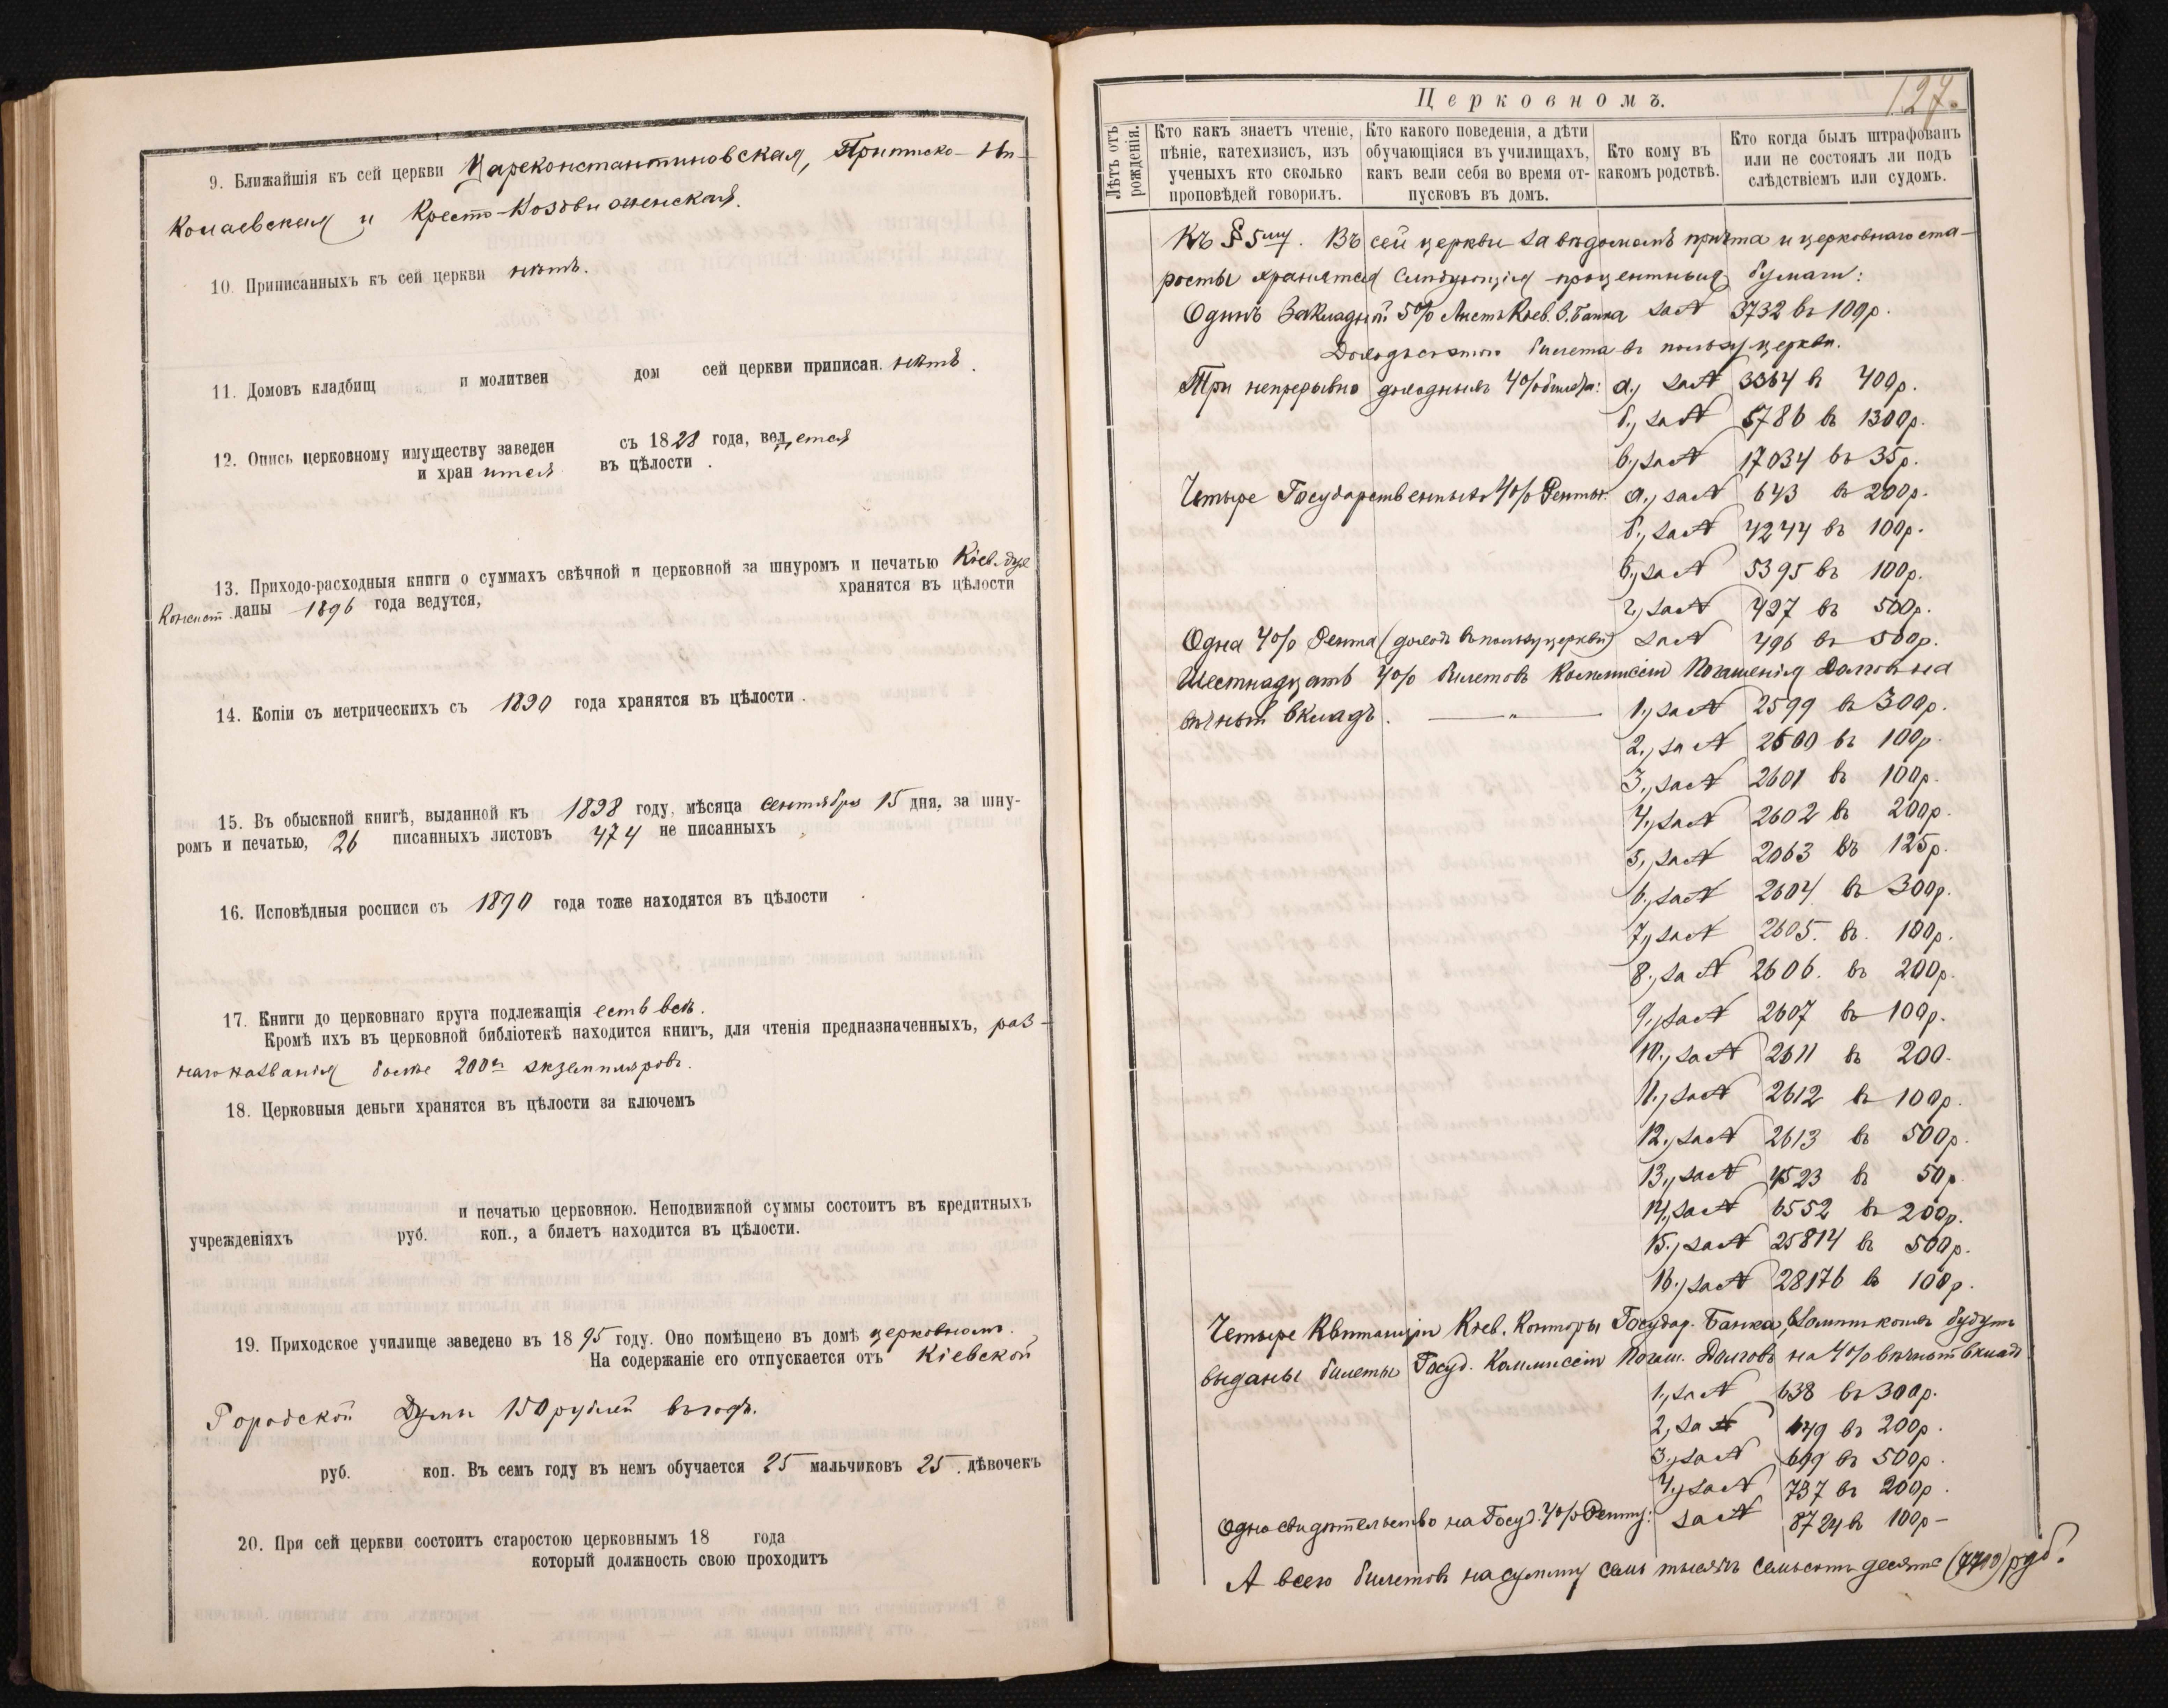 9. Ближайшія къ сей церкви Цареконстантиновская, Притиско-Ни-
колаевская и Кресто-Воздвиженская.
10. Приписанныхъ къ сей церкви нѣтъ.
11. Домовъ кладбищ и молитвен дом сей церкви приписан. нѣтъ.
12. Опись церковному имуществу заведен съ 1828 года, ведется
и хранится въ цѣлости.
13. Приходо-расходныя книги о суммахъ свѣчной и церковной за шнуромъ и печатью Кіев. Дух.
Консист. даны 1896 года ведутся, хранятся въ цѣлости
14. Копіи съ метрическихъ съ 1890 года хранятся въ цѣлости.
15. Въ обыскной книгѣ, выданной къ 1898 году, мѣсяца сентября 15 дня, за шну-
ромъ и печатью, 26 писанныхъ листовъ 474 не писанныхъ
16. Исповѣдныя росписи съ 1890 года тоже находятся въ цѣлости
17. Книги до церковнаго круга подлежащія есть всѣ.
Кромѣ ихъ въ церковной библіотекѣ находится книгъ, для чтенія предназначенныхъ, раз-
наго названія болѣе 200 экземпляровъ.
18. Церковныя деньги хранятся въ цѣлости за ключемъ
и печатью церковною. Неподвижной суммы состоитъ въ кредитныхъ
учрежденіяхъ руб. коп., а билетъ находится въ цѣлости.
19. Приходское училище заведено въ 1895 году. Оно помѣщено въ домѣ церковномъ.
На содержаніе его отпускается отъ Кіевской
Городской Думы 150 рублей въ годъ.
руб. коп. Въ семъ году въ немъ обучается 25 мальчиковъ 25 дѣвочекъ
20. При сей церкви состоитъ старостою церковнымъ 18 года
который должность свою проходитъ
Церковномъ.
127.
Лѣтъ отъ рожденія.
Кто какъ знаетъ чтеніе,
пѣніе, катехизисъ, изъ
ученыхъ кто сколько
проповѣдей говорилъ.
Кто какого поведенія, а дѣти
обучающіяся въ училищахъ,
какъ вели себя во время от-
пусковъ въ домъ.
Кто кому въ
какомъ родствѣ.
Кто когда былъ штрафованъ
или не состоялъ ли подъ
слѣдствіемъ или судомъ.
Къ § 5му. Въ сей церкви за вѣдомомъ причта и церковнаго ста-
росты хранятся слѣдующія процентныя бумаги:
Одинъ Закладный 5% Листъ Кіев. З. Банка за № 3732 въ 100 р.
Доходъ съ этого билета въ пользу церкви.
Три непрерывно доходныхъ 4% билета: а., за № 3364 в 400 р.
б., за № 5786 въ 1300 р.
в., за № 17034 въ 35 р.
Четыре Государственныхъ 4% Ренты: а., за № 643 въ 200 р.
б., за № 4244 въ 100 р.
в., за № 5395 въ 100 р.
г., за № 427 въ 500 р.
Одна 4% Рента (доходъ въ пользу церкви) за № 496 въ 500 р.
Шестнадцать 4% билетовъ Коммиссіи Погашенія Долговъ на
вѣчный вкладъ. — " — 1., за № 2599 въ 300 р.
2., за № 2600 въ 100 р.
3., за № 2601 въ 100 р.
4., за № 2602 въ 200 р.
5., за № 2063 въ 125 р.
6., за № 2604 въ 300 р.
7., за № 2605. въ. 100 р.
8., за № 2606. въ 200 р.
9., за № 2607 въ 100 р.
10., за № 2611 въ 200.
11., за № 2612 въ 100 р.
12., за № 2613 въ 500 р.
13., за № 4523 въ 50 р.
14., за № 6552 въ 200 р.
15., за № 25814 въ 500 р.
16., за № 28176 въ 100 р.
Четыре Квитанціи Кіев. Конторы Государ. Банка, взамѣнъ коихъ будутъ
выданы билеты Госуд. Коммиссіи Погаш. Долговъ на 4% вѣчный вкладъ
1., за № 638 въ 300 р.
2., за № 649 въ 200 р.
3., за № 699 въ 500 р.
4., за № 737 въ 200 р.
Одно свидѣтельство на Госуд. 4% Ренту: за № 8724 въ 100 р—
А всего билетовъ на сумму семь тысячъ семьсотъ десять (7710) руб.